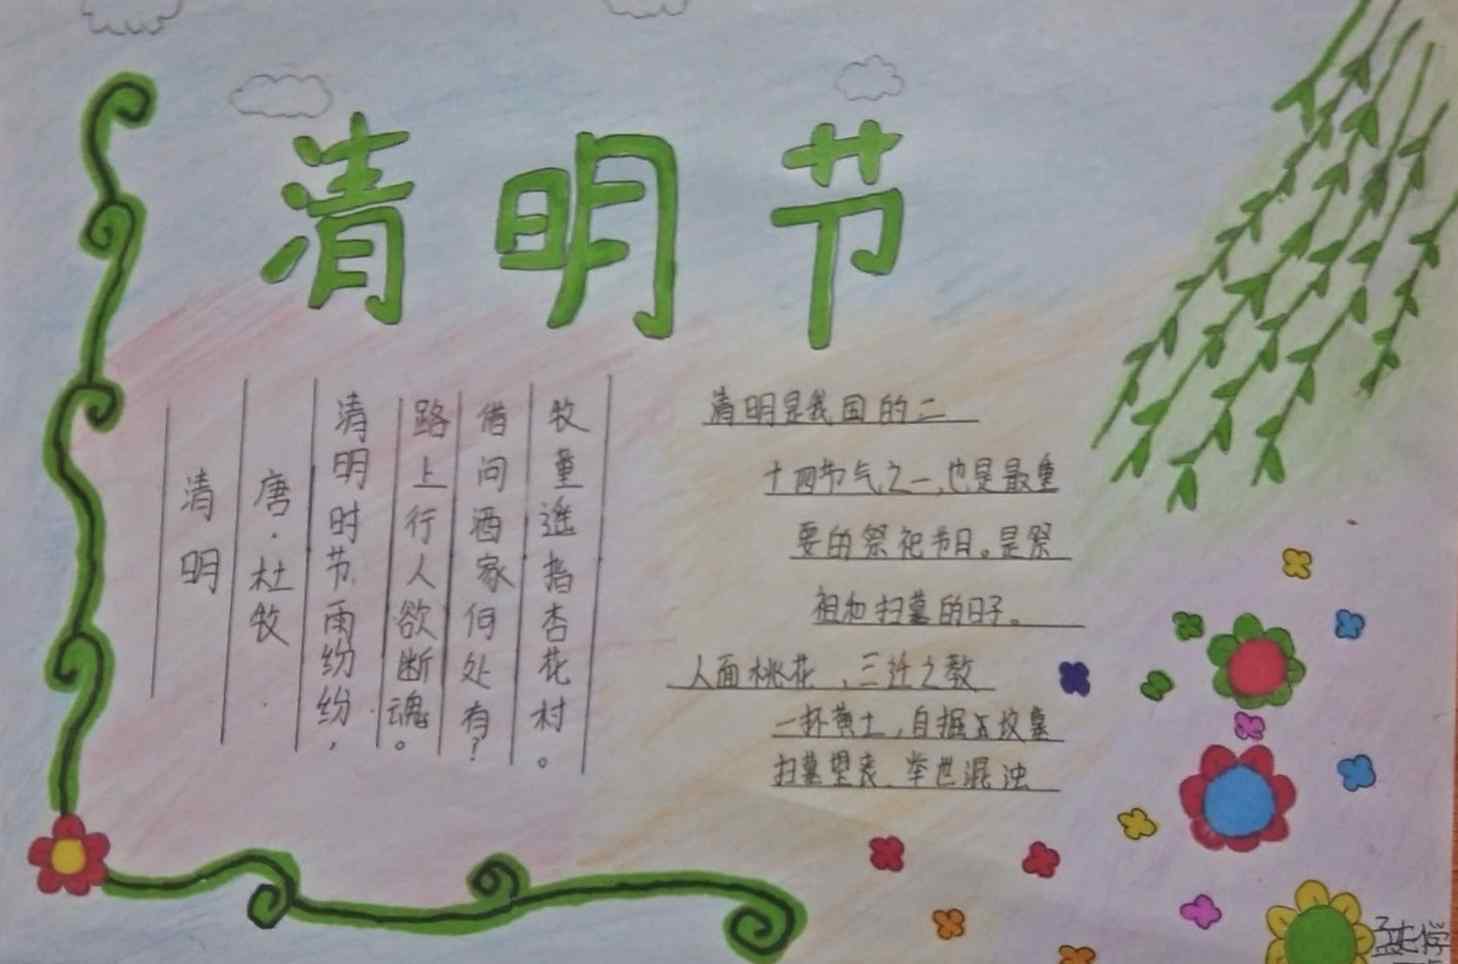 清明节
清明
唐·杜牧
清明时节雨纷纷，
路上行人欲断魂。
借问酒家何处有？
牧童遥指杏花村。
清明是我国的二
十四节气之一,也是最重
要的祭祀节日。是祭
祖和扫墓的日子。
人面桃花，三迁之教
一抔黄土，自掘坟墓
扫墓望丧、举世混浊